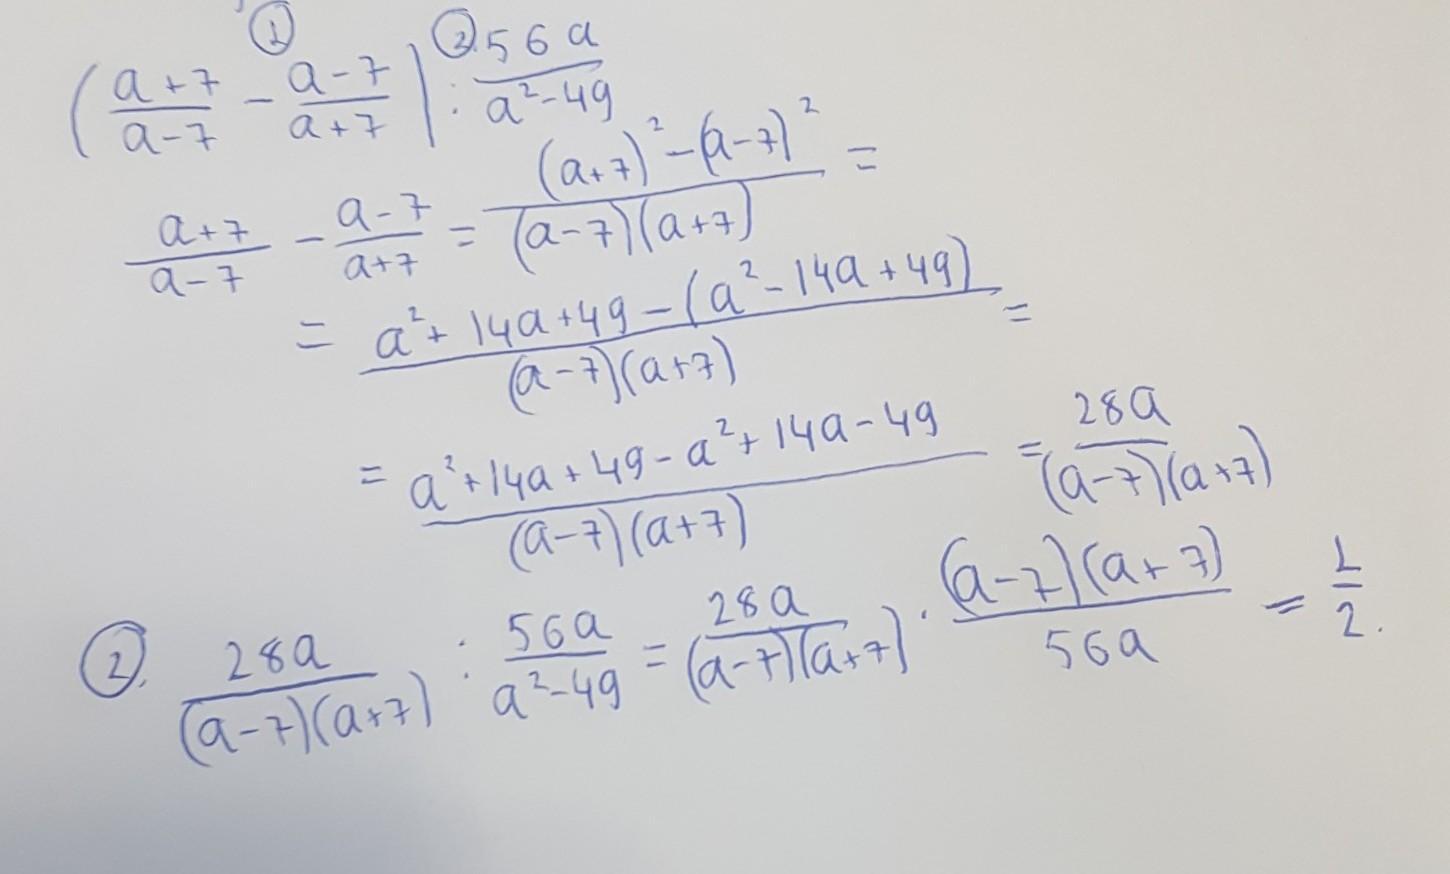 ① ②.
( (a+7)/(a-7) - (a-7)/(a+7) ) : 56a/(a²-49)
(a+7)/(a-7) - (a-7)/(a+7) = ((a+7)²-(a-7)²)/((a-7)(a+7)) =
= (a²+14a+49-(a²-14a+49))/((a-7)(a+7)) =
= (a²+14a+49-a²+14a-49)/((a-7)(a+7)) = 28a/((a-7)(a+7))
②. 28a/((a-7)(a+7)) : 56a/(a²-49) = 28a/((a-7)(a+7)) · ((a-7)(a+7))/56a = 1/2.